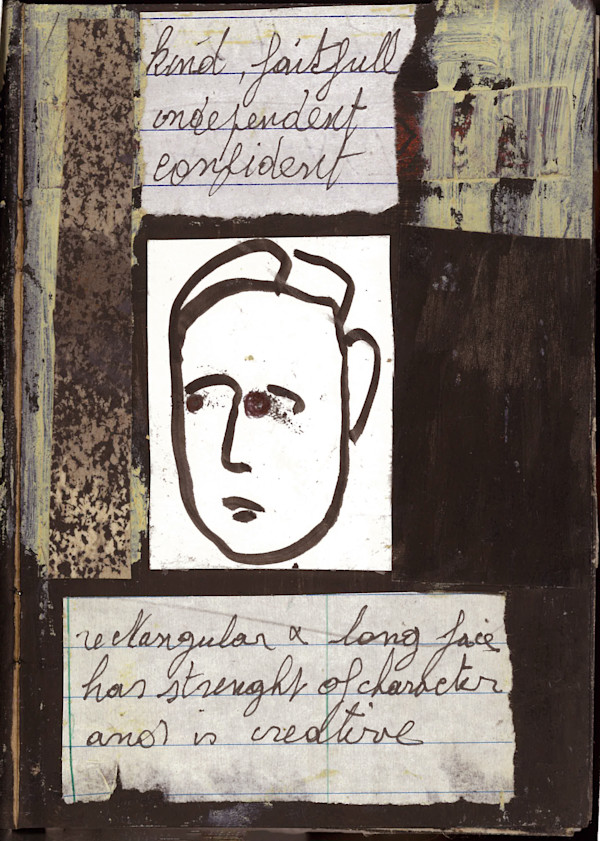 kind, faitfull
independent
confident
rectangular & long face
has strenght of character
and is creative